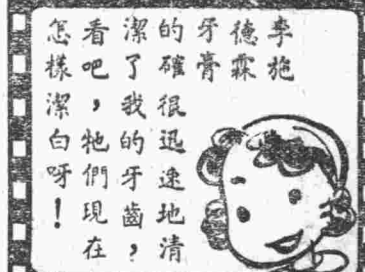 李施
德霖
牙膏
的確很迅速地清
潔了我的牙齒，
看吧，牠們現在
怎樣潔白呀！